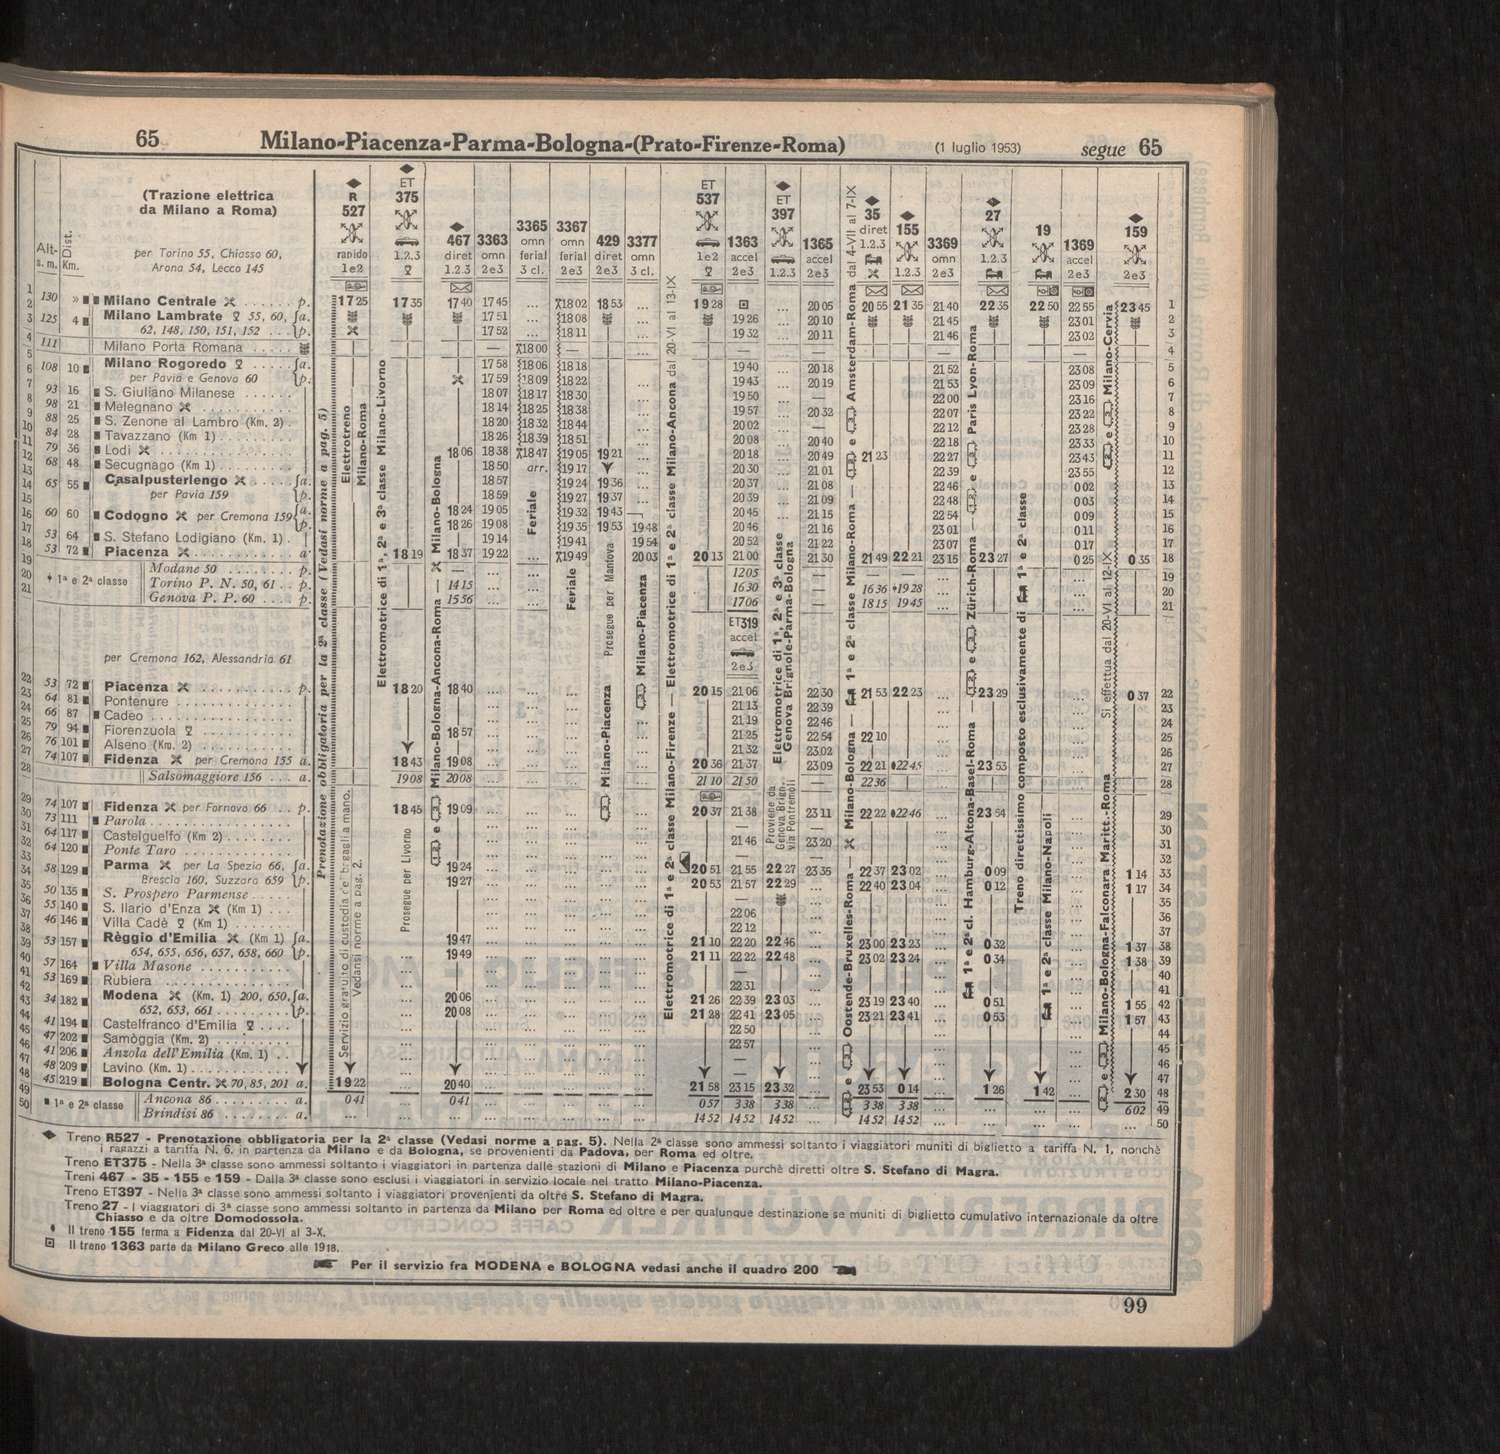 65 Milano-Piacenza-Parma-Bologna-(Prato-Firenze-Roma) (1 luglio 1953) segue 65
(Trazione elettrica
da Milano a Roma)
per Torino 55, Chiasso 60,
Arona 54, Lecco 145
Alt. s. m. Dist. Km.
R 527 rapido 1e2
ET 375 1.2.3
467 diret 1.2.3
3363 omn 2e3
3365 omn ferial 3 cl.
3367 omn ferial 2e3
429 diret 2e3
3377 omn 3 cl.
ET 537 1e2
1363 accel 2e3
ET 397 1.2.3
1365 accel 2e3
35 diret 1.2.3
155 1.2.3
3369 omn 2e3
27 1.2.3
19
1369 accel 2e3
159 2e3
1 130 » Milano Centrale p. 17 25 17 35 17 40 17 45 ... 18 02 18 53 ... 19 28 20 05 20 55 21 35 21 40 22 35 22 50 22 55 23 45 1
2 125 4 Milano Lambrate 55, 60, a. 17 51 ... 18 08 ... 19 26 20 10 21 45 23 01 2
3 62, 148, 150, 151, 152 ... p. 17 52 ... 18 11 ... 19 32 20 11 21 46 23 02 3
4 111 Milano Porta Romana 18 00 — 4
5 108 10 Milano Rogoredo a. 17 58 18 06 18 18 ... 19 40 20 18 21 52 23 08 5
6 per Pavia e Genova 60 p. 17 59 18 09 18 22 ... 19 43 20 19 21 53 23 09 6
7 93 16 S. Giuliano Milanese 18 07 18 17 18 30 ... 19 50 — 22 00 23 16 7
8 98 21 Melegnano 18 14 18 25 18 38 ... 19 57 20 32 22 07 23 22 8
9 88 25 S. Zenone al Lambro (Km. 2) 18 20 18 32 18 44 ... 20 02 — 22 12 23 28 9
10 84 28 Tavazzano (Km 1) 18 26 18 39 18 51 ... 20 08 20 40 22 18 23 33 10
11 79 36 Lodi 18 06 18 38 18 47 19 05 19 21 ... 20 18 20 49 21 23 22 27 23 43 11
12 68 48 Secugnago (Km 1) 18 50 arr. 19 17 ... 20 30 21 01 22 39 23 55 12
13 65 55 Casalpusterlengo a. 18 57 19 24 19 36 ... 20 37 21 08 22 46 0 02 13
14 per Pavia 159 p. 18 59 19 27 19 37 ... 20 39 21 09 22 48 0 03 14
15 60 60 Codogno per Cremona 159 a. 18 24 19 05 19 32 19 43 — 20 45 21 15 22 54 0 09 15
16 p. 18 26 19 08 19 35 19 53 19 48 20 46 21 16 23 01 0 11 16
17 53 64 S. Stefano Lodigiano (Km. 1) 19 14 19 41 19 54 20 52 21 22 23 07 0 17 17
18 53 72 Piacenza a. 18 19 18 37 19 22 ... 19 49 20 03 20 13 21 00 21 30 21 49 22 21 23 15 23 27 0 25 0 35 18
19 1ª e 2ª classe Modane 50 p. — 12 05 — — — 19
20 Torino P. N. 50, 61 p. 14 15 16 30 — 16 36 19 28 20
21 Genova P. P. 60 p. 15 56 17 06 — 18 15 19 45 21
ET319
accel
2e3
per Cremona 162, Alessandria 61
22 53 72 Piacenza p. 18 20 18 40 20 15 21 06 22 30 21 53 22 23 23 29 0 37 22
23 64 81 Pontenure 21 13 22 39 23
24 66 87 Cadeo 21 19 22 46 24
25 79 94 Fiorenzuola 18 57 21 25 22 54 22 10 25
26 76 101 Alseno (Km. 2) 21 32 23 02 26
27 74 107 Fidenza per Cremona 155 a. 18 43 19 08 20 36 21 37 23 09 22 21 22 45 23 53 27
28 Salsomaggiore 156 a. 19 08 20 08 21 10 21 50 22 36 28
29 74 107 Fidenza per Fornovo 66 p. 18 45 19 09 20 37 21 38 23 11 22 22 22 46 23 54 29
30 73 111 Parola 30
31 64 117 Castelguelfo (Km 2) 21 46 23 20 31
32 64 120 Ponte Taro — — 32
33 58 129 Parma per La Spezia 66, a. 19 24 20 51 21 55 22 27 23 35 22 37 23 02 0 09 1 14 33
34 Brescia 160, Suzzara 659 p. 19 27 20 53 21 57 22 29 22 40 23 04 0 12 1 17 34
35 50 135 S. Prospero Parmense — 35
36 55 140 S. Ilario d'Enza (Km 1) 22 06 36
37 46 146 Villa Cadè (Km 1) 22 12 37
38 53 157 Règgio d'Emilia (Km 1) a. 19 47 21 10 22 20 22 46 23 00 23 23 0 32 1 37 38
39 654, 655, 656, 657, 658, 660 p. 19 49 21 11 22 22 22 48 23 02 23 24 0 34 1 38 39
40 57 164 Villa Masone — 40
41 53 169 Rubiera 22 31 41
42 34 182 Modena (Km. 1) 200, 650, a. 20 06 21 26 22 39 23 03 23 19 23 40 0 51 1 55 42
43 652, 653, 661 p. 20 08 21 28 22 41 23 05 23 21 23 41 0 53 1 57 43
44 41 194 Castelfranco d'Emilia 22 50
45 47 202 Samòggia (Km. 2) 22 57 45
46 41 206 Anzola dell'Emilia (Km. 1) — 46
47 48 209 Lavino (Km. 1) — 47
48 45 219 Bologna Centr. 70, 85, 201 a. 19 22 20 40 21 58 23 15 23 32 23 53 0 14 1 26 1 42 2 30 48
49 1ª e 2ª classe Ancona 86 a. 0 41 0 41 0 57 3 38 3 38 3 38 3 38 6 02 49
50 Brindisi 86 a. 14 52 14 52 14 52 14 52 14 52 50
Prenotazione obbligatoria per la 2ª classe (Vedasi norme a pag. 5)
Elettrotreno
Milano-Roma
Servizio gratuito di custodia dei bagagli a mano.
Vedansi norme a pag. 2.
Elettromotrice di 1ª, 2ª e 3ª classe Milano-Livorno
Prosegue per Livorno
Milano-Bologna-Ancona-Roma — Milano-Bologna
Feriale
Feriale
Prosegue per Mantova
Milano-Piacenza
Milano-Piacenza
Elettromotrice di 1ª e 2ª classe Milano-Firenze — Elettromotrice di 1ª e 2ª classe Milano-Ancona dal 20-VI al 13-IX
Elettromotrice di 1ª, 2ª e 3ª classe
Genova Brignole-Parma-Bologna
Proviene da
Genova Brign.
via Pontremoli
Oostende-Bruxelles-Roma — Milano-Bologna — 1ª e 2ª classe Milano-Roma — e Amsterdam-Roma dal 4-VII al 7-IX
1ª e 2ª cl. Hamburg-Altona-Basel-Roma — e Zürich-Roma — e Paris Lyon-Roma
Treno direttissimo composto esclusivamente di 1ª e 2ª classe
1ª e 2ª classe Milano-Napoli
Milano-Bologna-Falconara Maritt.-Roma
Si effettua dal 20-VI al 12-IX
e Milano-Cervia
Treno R527 - Prenotazione obbligatoria per la 2ª classe (Vedasi norme a pag. 5). Nella 2ª classe sono ammessi soltanto i viaggiatori muniti di biglietto a tariffa N. 1, nonchè
i ragazzi a tariffa N. 6, in partenza da Milano e da Bologna, se provenienti da Padova, per Roma ed oltre.
Treno ET375 - Nella 3ª classe sono ammessi soltanto i viaggiatori in partenza dalle stazioni di Milano e Piacenza purchè diretti oltre S. Stefano di Magra.
Treni 467 - 35 - 155 e 159 - Dalla 3ª classe sono esclusi i viaggiatori in servizio locale nel tratto Milano-Piacenza.
Treno ET397 - Nella 3ª classe sono ammessi soltanto i viaggiatori provenienti da oltre S. Stefano di Magra.
Treno 27 - I viaggiatori di 3ª classe sono ammessi soltanto in partenza da Milano per Roma ed oltre e per qualunque destinazione se muniti di biglietto cumulativo internazionale da oltre
Chiasso e da oltre Domodossola.
Il treno 155 ferma a Fidenza dal 20-VI al 3-X.
Il treno 1363 parte da Milano Greco alle 1918.
Per il servizio fra MODENA e BOLOGNA vedasi anche il quadro 200
99